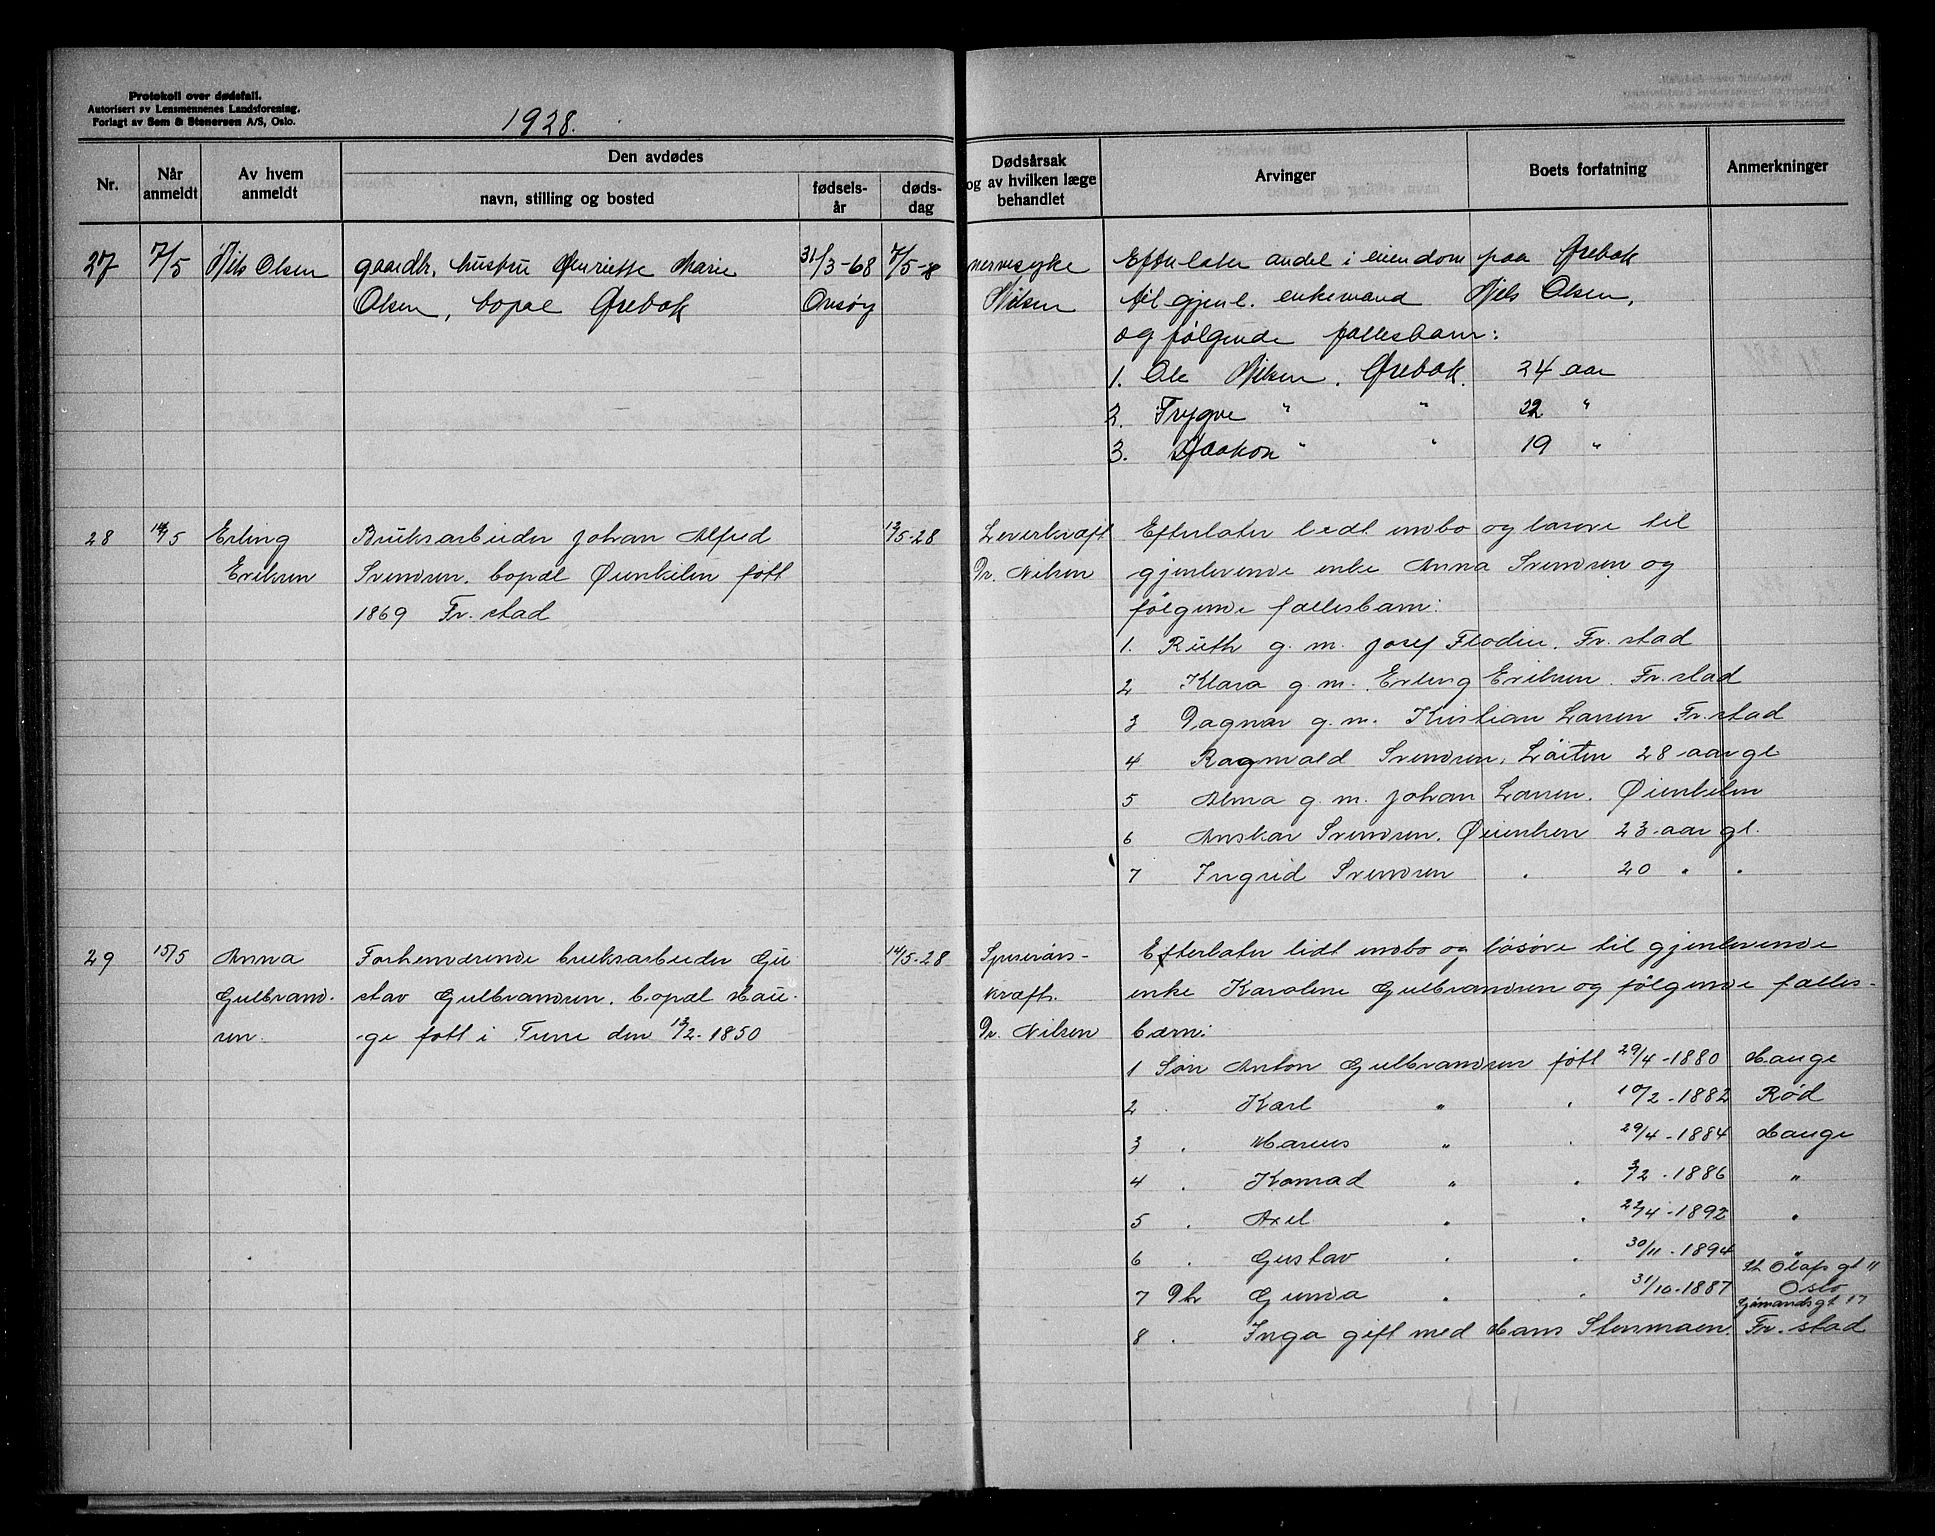 Protokoll over dødsfall.
Autorisert av Lensmennenes Landsforening.
Forlagt av Sem & Stenersen A/S, Oslo.
1928.
Nr.
Når anmeldt
Av hvem anmeldt
Den avdødes
navn, stilling og bosted
fødsels-år
døds-dag
Dødsårsak og av hvilken læge behandlet
Arvinger
Boets forfatning
Anmerkninger
27 7/5 Nils Olsen gaardbr. hustru Henriette Marie 31/3-68 7/5-28 nervesyke Efterlater andel i eiendom paa Ørebæk
Olsen, bopæl Ørebæk Onsøy Nilsen til gjenl. enkemand Nils Olsen,
og følgende fællesbarn:
1. Ole Nilsen, Ørebæk. 24 aar
2. Trygve " " 22 "
3. Haakon " " 19 "
28 14/5 Erling Bruksarbeider Johan Alfred 13/5-28 Leverkræft Efterlater lidt indbo og løsøre til
Eriksen Svendsen. bopæl Øienkilen født Dr. Nilsen gjenlevende enke Anna Svendsen og
1869 Fr.stad følgende fællesbarn:
1. Ruth g. m. Josef Flodin. Fr.stad
2 Klara g. m. Erling Eriksen. Fr.stad
3 Dagmar g. m. Kristian Larsen Fr.stad
4 Ragnvald Svendsen, Løiten 28 aar gl
5 Alma g. m. Johan Larsen. Øienkilen
6 Anskar Svendsen. Øienkilen 23 aar gl.
7 Ingrid Svendsen " 20 " "
29 15/5 Anna Forhenværende bruksarbeider Gu 14/5-28 Spiserørs- Efterlater lidt indbo og løsøre til gjenlevende
Gulbrand- stav Gulbrandsen. bopæl Hau- kræft. enke Karoline Gulbrandsen og følgende fælles-
sen. ge født i Tune den 13/2-1850 Dr. Nilsen barn:
1 Søn Anton Gulbrandsen født 29/4-1880 Hauge
2 " Karl " " 10/2-1882 Rød
3 " Marius " " 29/4-1884 Hauge
4 " Konrad " " 3/2-1886 "
5 " Axel " " 22/4-1892 "
6 " Gustav " " 30/11-1894 "
St. Olafs gt 11
7 Dtr Gunda " " 31/10-1887 Oslo
8 " Inga gift med Hans Stenmaen. Fr.stad